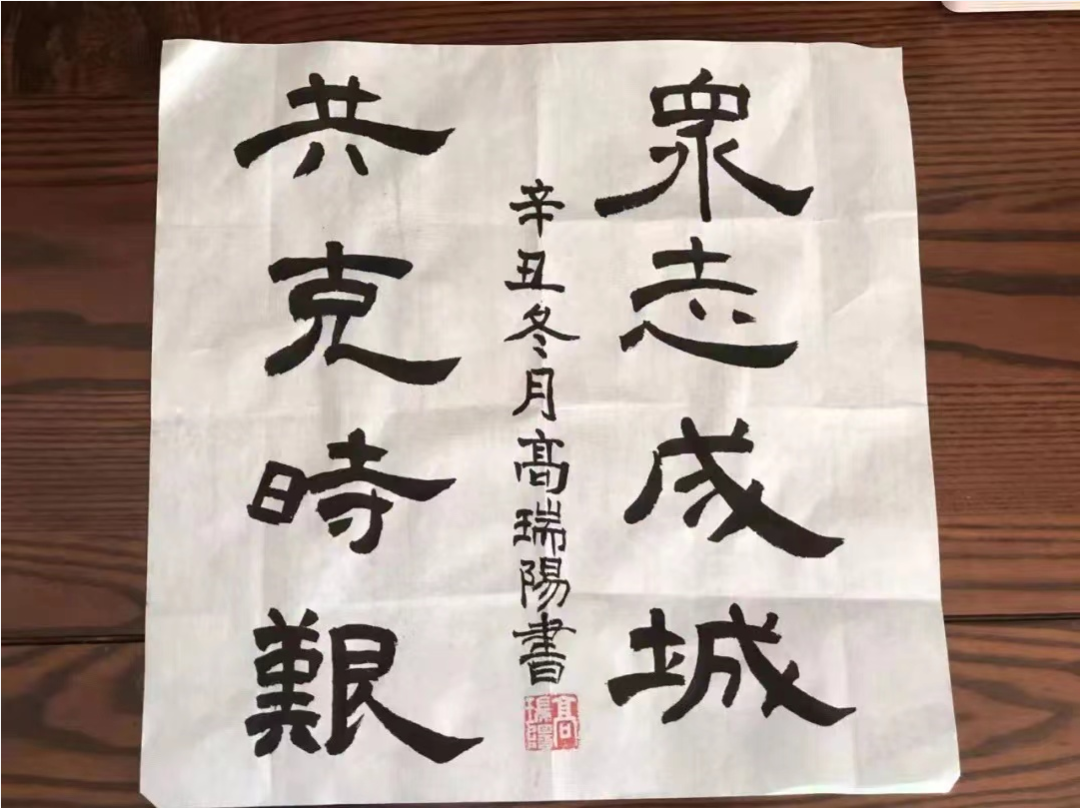 眾志成城
辛丑冬月高瑞陽書
共克時艱
高瑞陽